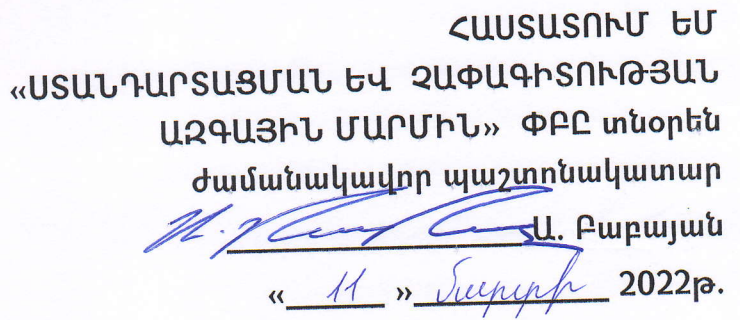 ՀԱՍՏԱՏՈՒՄ ԵՄ
«ՍՏԱՆԴԱՐՏԱՑՄԱՆ ԵՎ ՉԱՓԱԳԻՏՈՒԹՅԱՆ
ԱԶԳԱՅԻՆ ՄԱՐՄԻՆ» ՓԲԸ տնօրեն
ժամանակավոր պաշտոնակատար
Ա. Բաբայան
« 11 » մարտի 2022թ.